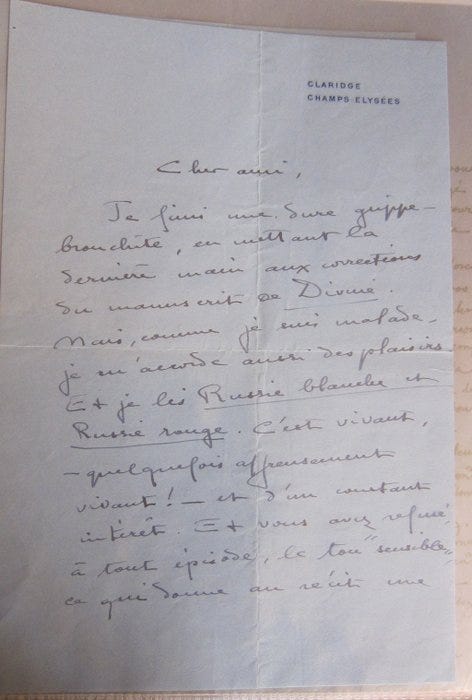 CLARIDGE
CHAMPS ELYSÉES
Cher ami,
Je finis une dure grippe-
bronchite, en mettant la
dernière main aux corrections
du manuscrit de Divine.
Mais, comme je suis malade,
je m'accorde aussi des plaisirs
Et je lis Russie blanche et
Russie rouge. C'est vivant,
- quelquefois affreusement
vivant! - et d'un constant
intérêt. Et vous avez refusé,
à tout épisode, le ton "sensible",
ce qui donne au récit une